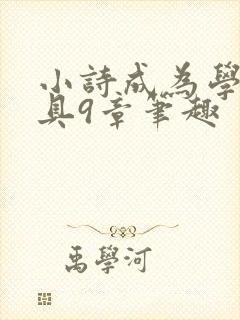 小詩成為學
具9章筆趣
禹學河